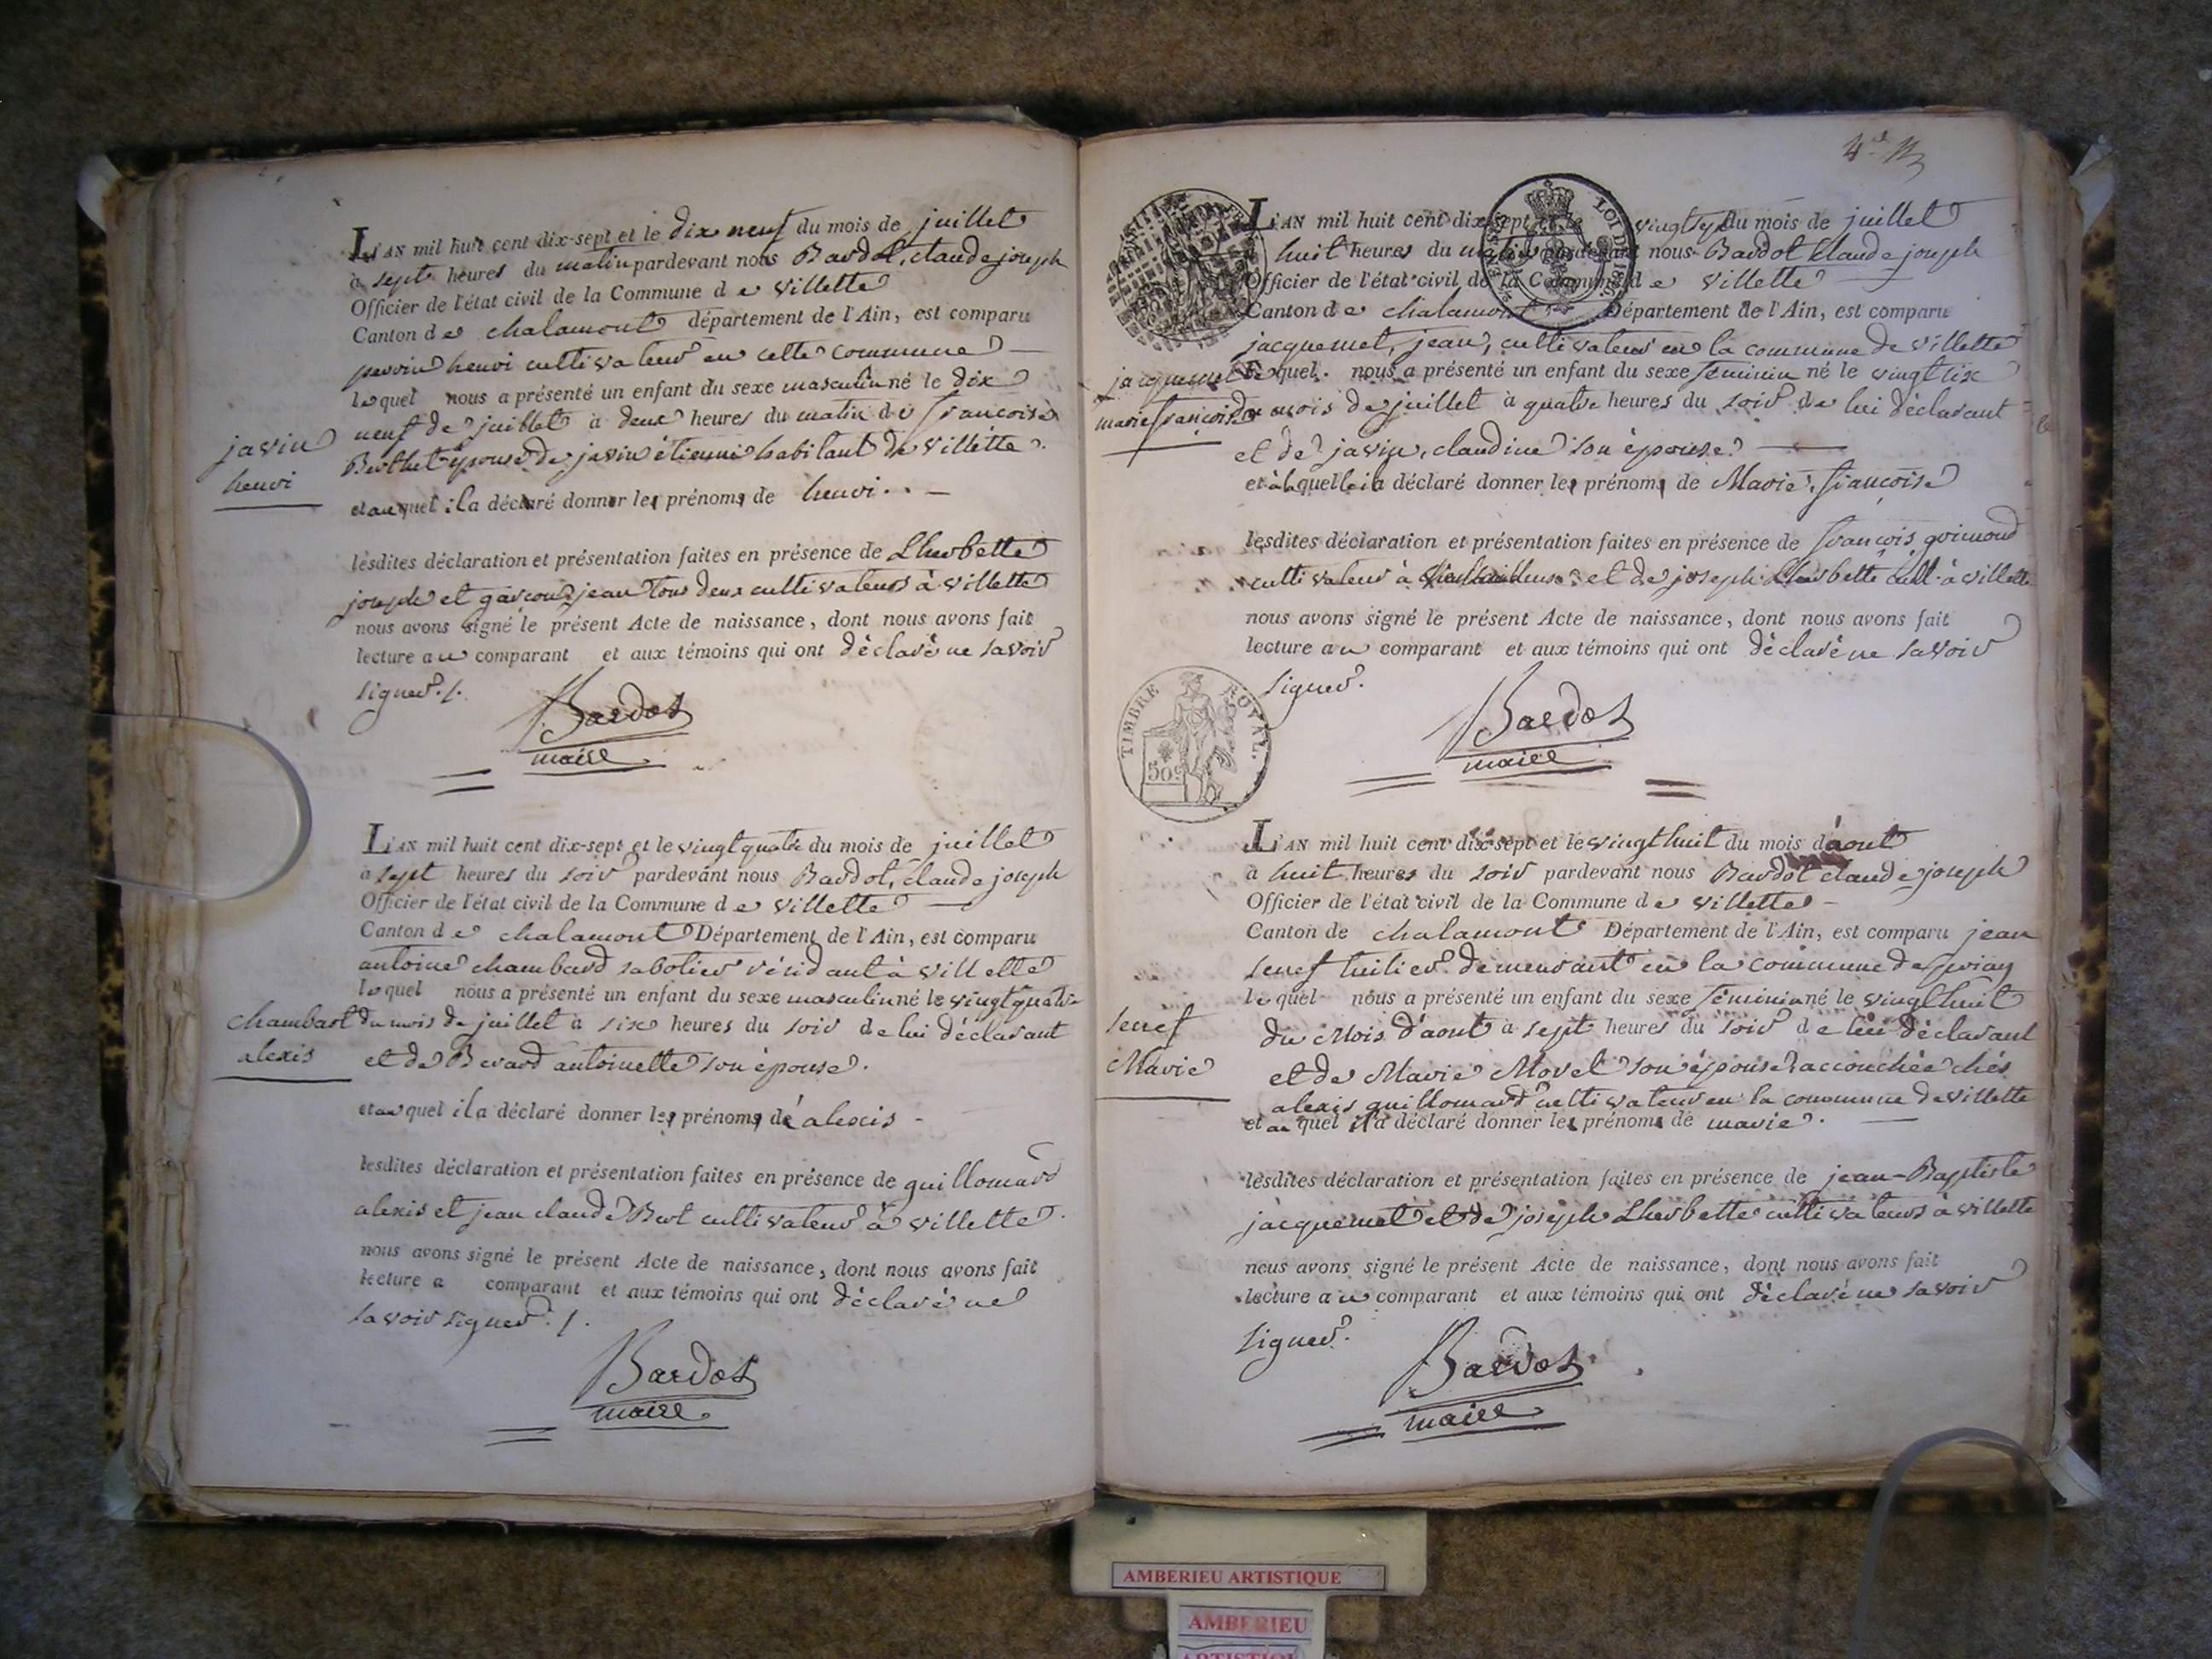 L'AN mil huit cent dix-sept et le dix neuf du mois de juillet
à sept heures du matin pardevant nous Bardot, claude joseph
Officier de l'état civil de la Commune de villette
Canton de chalamont département de l'Ain, est comparu
perrin henri cultivateur en cette commune
lequel nous a présenté un enfant du sexe masculin né le dix
neuf de juillet à deux heures du matin de françoise
Berthet épouse de javin étienne habitant de villette.
javin
henri
et auquel il a déclaré donner les prénoms de henri.
lesdites déclaration et présentation faites en présence de Lherbette
joseph et garçon jean tous deux cultivateurs à villette
nous avons signé le présent Acte de naissance, dont nous avons fait
lecture au comparant et aux témoins qui ont déclaré ne savoir
signer ./.
Bardot
maire
L'AN mil huit cent dix-sept et le vingt quatre du mois de juillet
à sept heures du soir pardevant nous Bardot, claude joseph
Officier de l'état civil de la Commune de villette
Canton de chalamont Département de l'Ain, est comparu
antoine chambard sabotier résidant à villette
lequel nous a présenté un enfant du sexe masculin né le vingt quatre
du mois de juillet à six heures du soir de lui déclarant
et de Berard antoinette son épouse.
chambart
alexis
et auquel il a déclaré donner les prénoms de alexis
lesdites déclaration et présentation faites en présence de guillomard
alexis et jean claude Bert cultivateur à villette.
nous avons signé le présent Acte de naissance, dont nous avons fait
lecture a comparant et aux témoins qui ont déclaré ne
savoir signer ./.
Bardot
maire
4e
L'AN mil huit cent dix-sept et le vingt sept du mois de juillet
huit heures du matin pardevant nous Bardot Claude joseph
Officier de l'état civil de la Commune de villette
Canton de chalamont Département de l'Ain, est comparu
LOI DE
jacquemet, jean, cultivateur en la commune de villette
lequel nous a présenté un enfant du sexe féminin né le vingt six
du mois de juillet à quatre heures du soir de lui déclarant
et de javin, claudine son épouse.
jacquemet
marie françoise
et à laquelle il a déclaré donner les prénoms de Marie, françoise
lesdites déclaration et présentation faites en présence de françois grimond
cultivateur à et de joseph Lherbette cult. à villette
nous avons signé le présent Acte de naissance, dont nous avons fait
lecture au comparant et aux témoins qui ont déclaré ne savoir
signer.
TIMBRE ROYAL.
50c
Bardot
maire
L'AN mil huit cent dix-sept et le vingt huit du mois d'aout
à huit heures du soir pardevant nous Bardot claude joseph
Officier de l'état civil de la Commune de villette
Canton de chalamont Département de l'Ain, est comparu jean
senef tuilier demeurant en la commune de priay
lequel nous a présenté un enfant du sexe féminin né le vingt huit
du Mois d'aout à sept heures du soir de lui déclarant
et de Marie Morel son épouse accouchée chés
alexis guillomard cultivateur en la commune de villette
senef
Marie
et au quel il a déclaré donner les prénoms de marie.
lesdites déclaration et présentation faites en présence de jean-Baptiste
jacquemet et de joseph Lherbette cultivateurs à villette
nous avons signé le présent Acte de naissance, dont nous avons fait
lecture au comparant et aux témoins qui ont déclaré ne savoir
signer.
Bardot
maire
AMBERIEU ARTISTIQUE
AMBERIEU
ARTISTIQUE